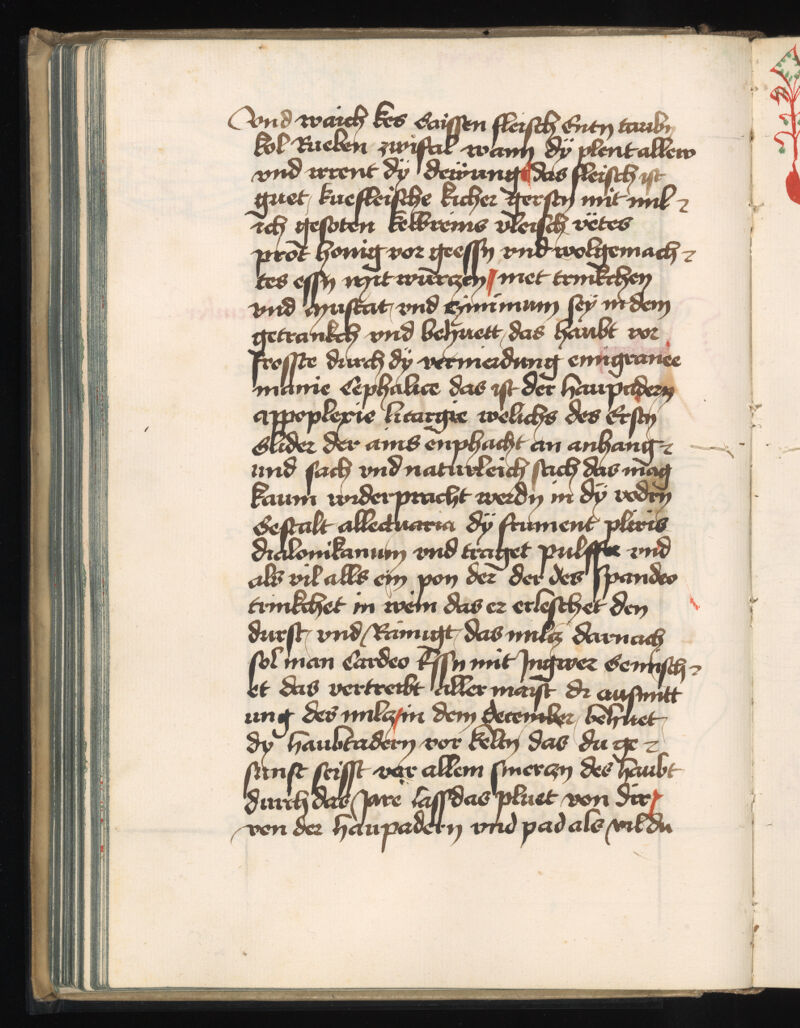 vnd waich kes Gaissen fleisch Entn taubn
kol Rueben zwifal wann dÿ plent allew
vnd irrent dÿ deẅung das fleisch ist
guet kuefleische kicher gersten mit mil
ich gesoten kelbreins vleisch vëtes
prot honig vor geessn vnd wolgemach
tes essn mit wurczen met trinkchen
vnd muscat vnd Ciminum seÿ in dem
getrankch vnd behuett das haubt vor
frosste durch dÿ vermeidung emigranee
manie Cephalice das ist der haupadern
appoplexie litargie welichs des Ersten
Glider der ains enphacht an anhang
und sach vnd naturleich sach das mag
kaum widerpracht werdn in dÿ vodrn
Gestalt allectuaria dÿ frument pliris
dialonikanum vnd traget vnd
als vil alls ein pon der der des Spandeo
trinkchet in wein das er erleschet den
durst vnd Rainigt das milcz darnach
sol man Cardeo Essn mit Ingwer Gemisch
et das vertreibt aller maist di
ung des milcz in dem december behuet
dÿ haubtadern vor keltn das du ge
sunt seisst vor allem smerczn des haubt
durch das Jare lass das pluet von dir
von der haupadern vnd pad als vil du